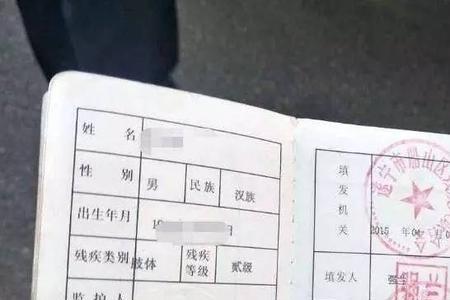 姓 名
性 别 男 民族 汉族
出生年月 19 日
残疾类别 肢体 残疾等级 贰级
监护人
填发机关 2015 年 04 月 0
遂宁市船山区
填发人